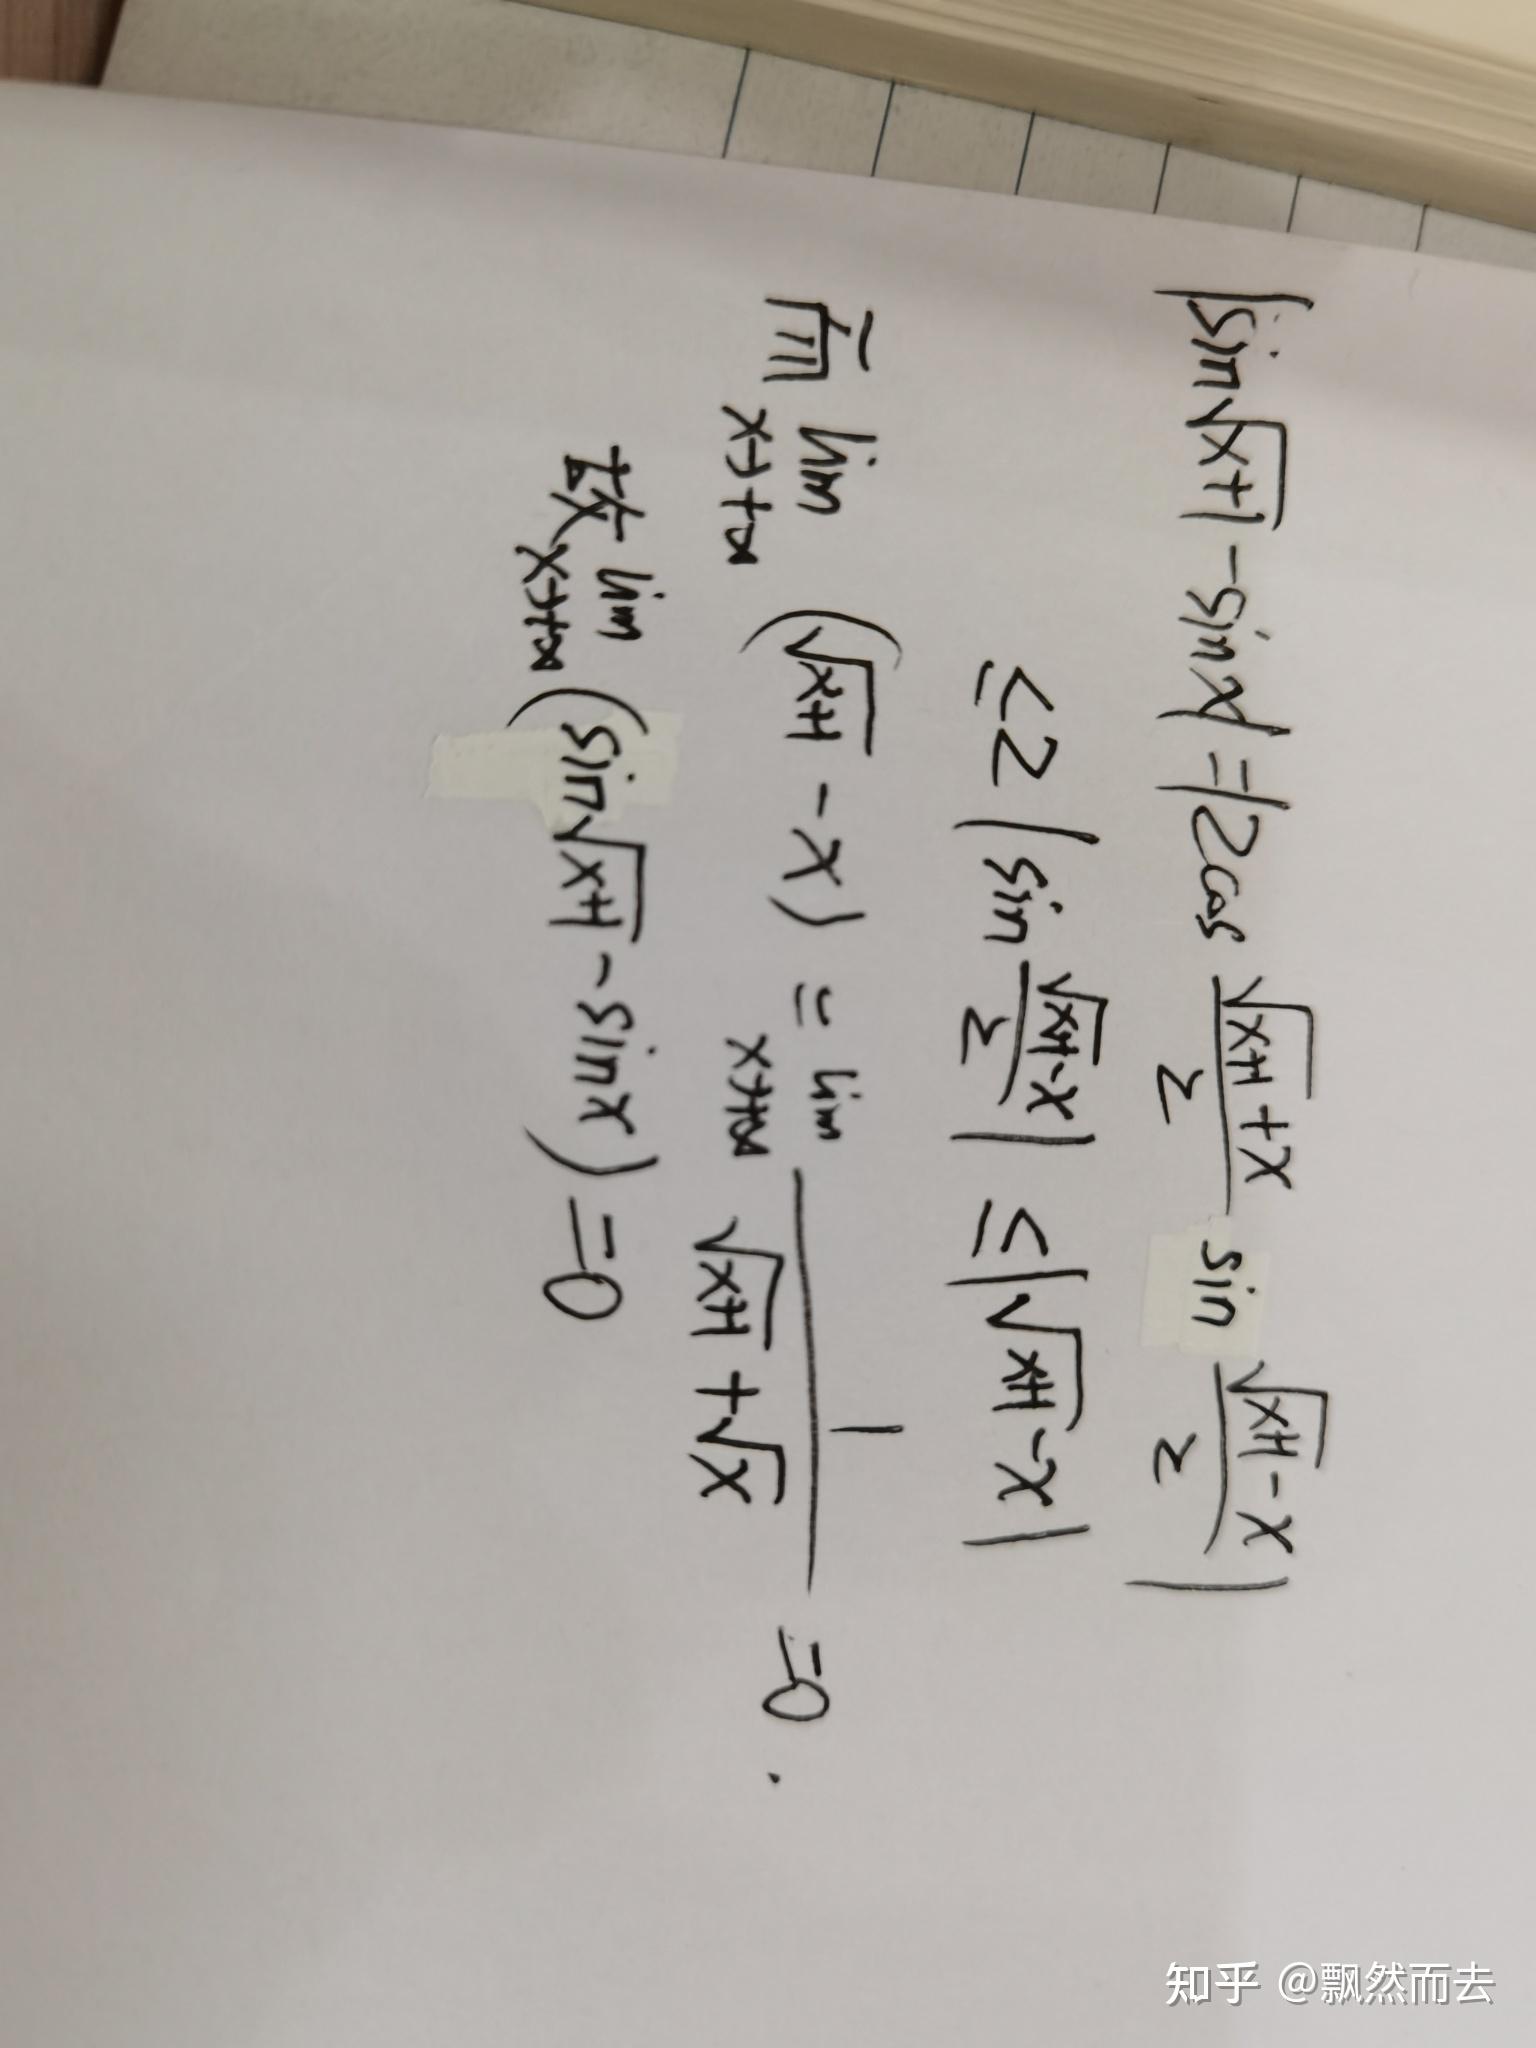 |sin√(x+1) - sinx| = |2cos (√(x+1) + x)/2 sin (√(x+1) - x)/2|
≤ 2|sin (√(x+1) - x)/2| ≤ |√(x+1) - x|
而 lim x→+∞ (√(x+1) - x) = lim x→+∞ 1/(√(x+1) + √x) = 0.
故 lim x→+∞ (sin√(x+1) - sinx) = 0
知乎 @飘然而去